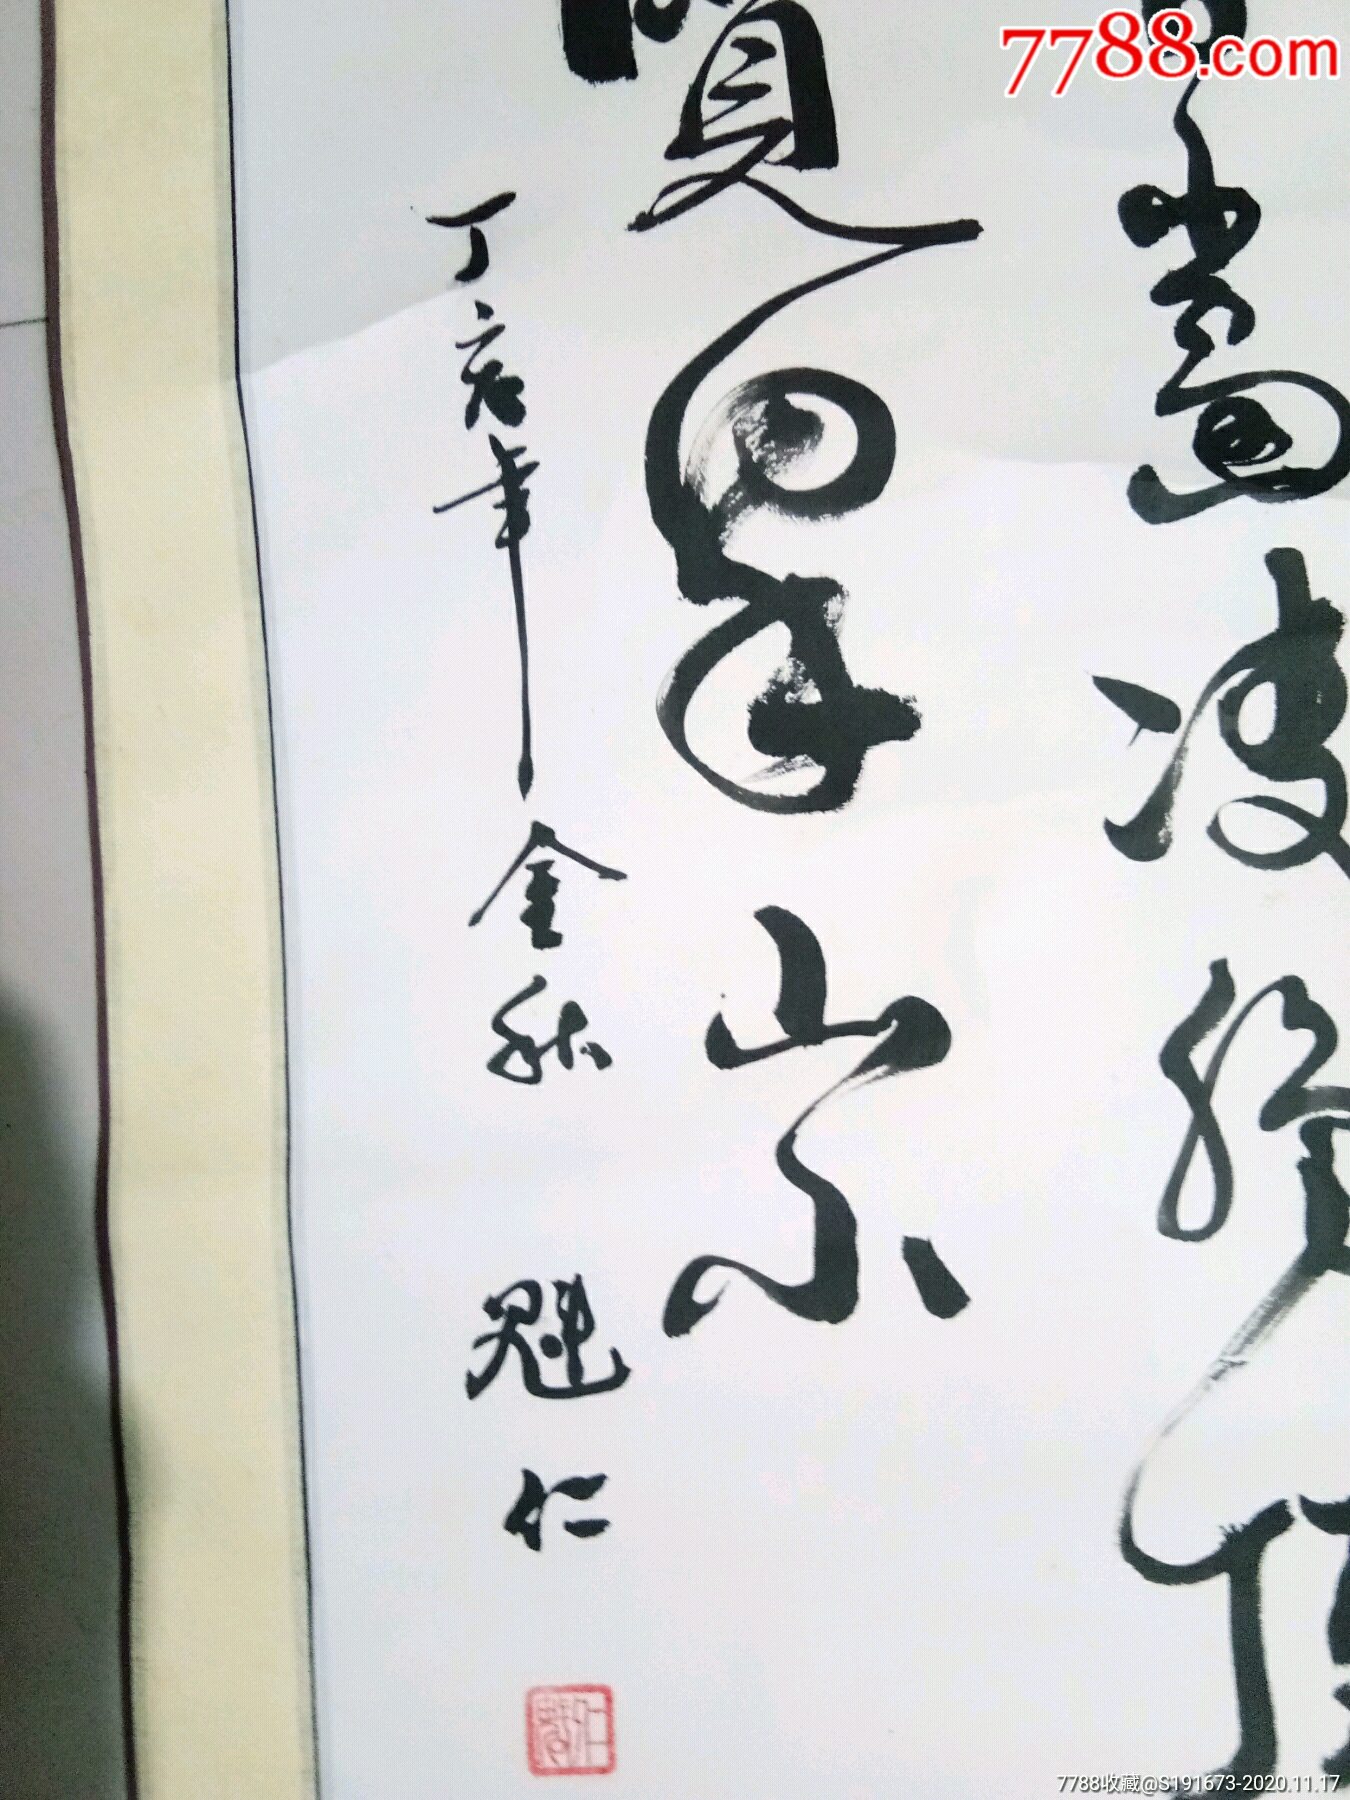 7788.com
當凌絕頂
覽眾山小
丁亥年金秋 魁仁
7788收藏@S191673-2020.11.17